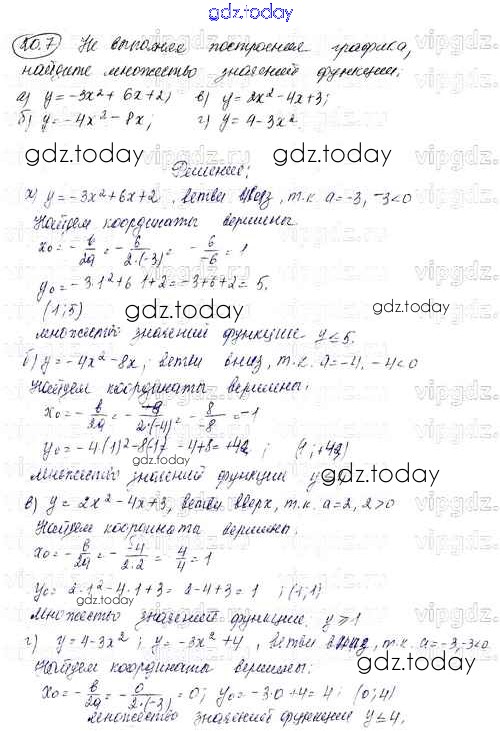 gdz.today
20.7 Не выполняя построения графика,
найдите множество значений функции:
а) y=-3x²+6x+2; в) y=2x²-4x+3;
б) y=-4x²-8x; г) y=4-3x².
gdz.today gdz.today
Решение:
а) y=-3x²+6x+2, ветви вниз, т.к. a=-3, -3<0
Найдем координаты вершины
x₀=-b/2a=-6/2·(-3)=-6/-6=1
y₀=-3·1²+6·1+2=-3+6+2=5.
gdz.today gdz.today
(1;5)
множество значений функции y≤5.
б) y=-4x²-8x; ветви вниз, т.к. a=-4, -4<0
Найдем координаты вершины:
x₀=-b/2a=--8/2·(-4)=-8/-8=-1
множество значений функции
gdz.today
в) y=2x²-4x+3, ветви вверх, т.к. a=2, 2>0
Найдем координаты вершины:
x₀=-b/2a=--4/2·2=4/4=1
gdz.today
y₀=2·1²-4·1+3=2-4+3=1; (1;1)
gdz.today
множество значений функции y≥1
г) y=4-3x²; y=-3x²+4, ветви вниз, т.к. a=-3, -3<0
Найдем координаты вершины:
gdz.today
x₀=-b/2a=-0/2·(-3)=0; y₀=-3·0+4=4; (0;4)
множество значений функции y≤4.